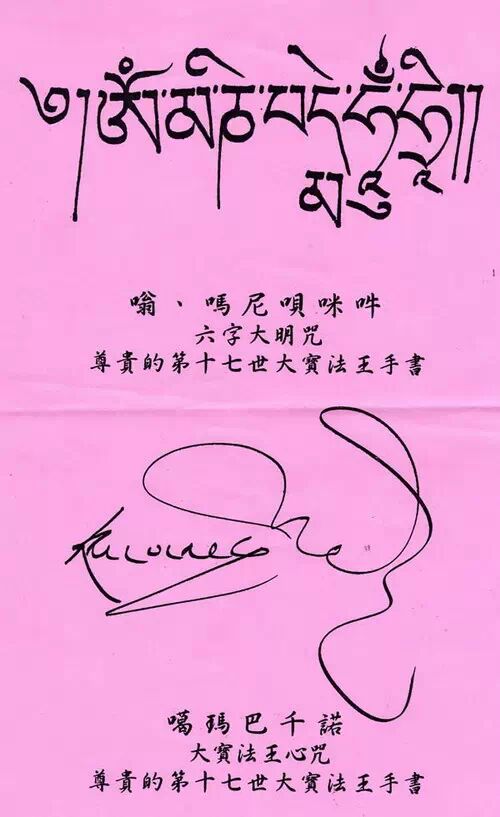 ༄། ཨོཾ་མ་ཎི་པདྨེ་ཧཱུྃ་ཧྲཱི།།
嗡、嗎尼唄咪吽
六字大明咒
尊貴的第十七世大寶法王手書
噶瑪巴千諾
大寶法王心咒
尊貴的第十七世大寶法王手書